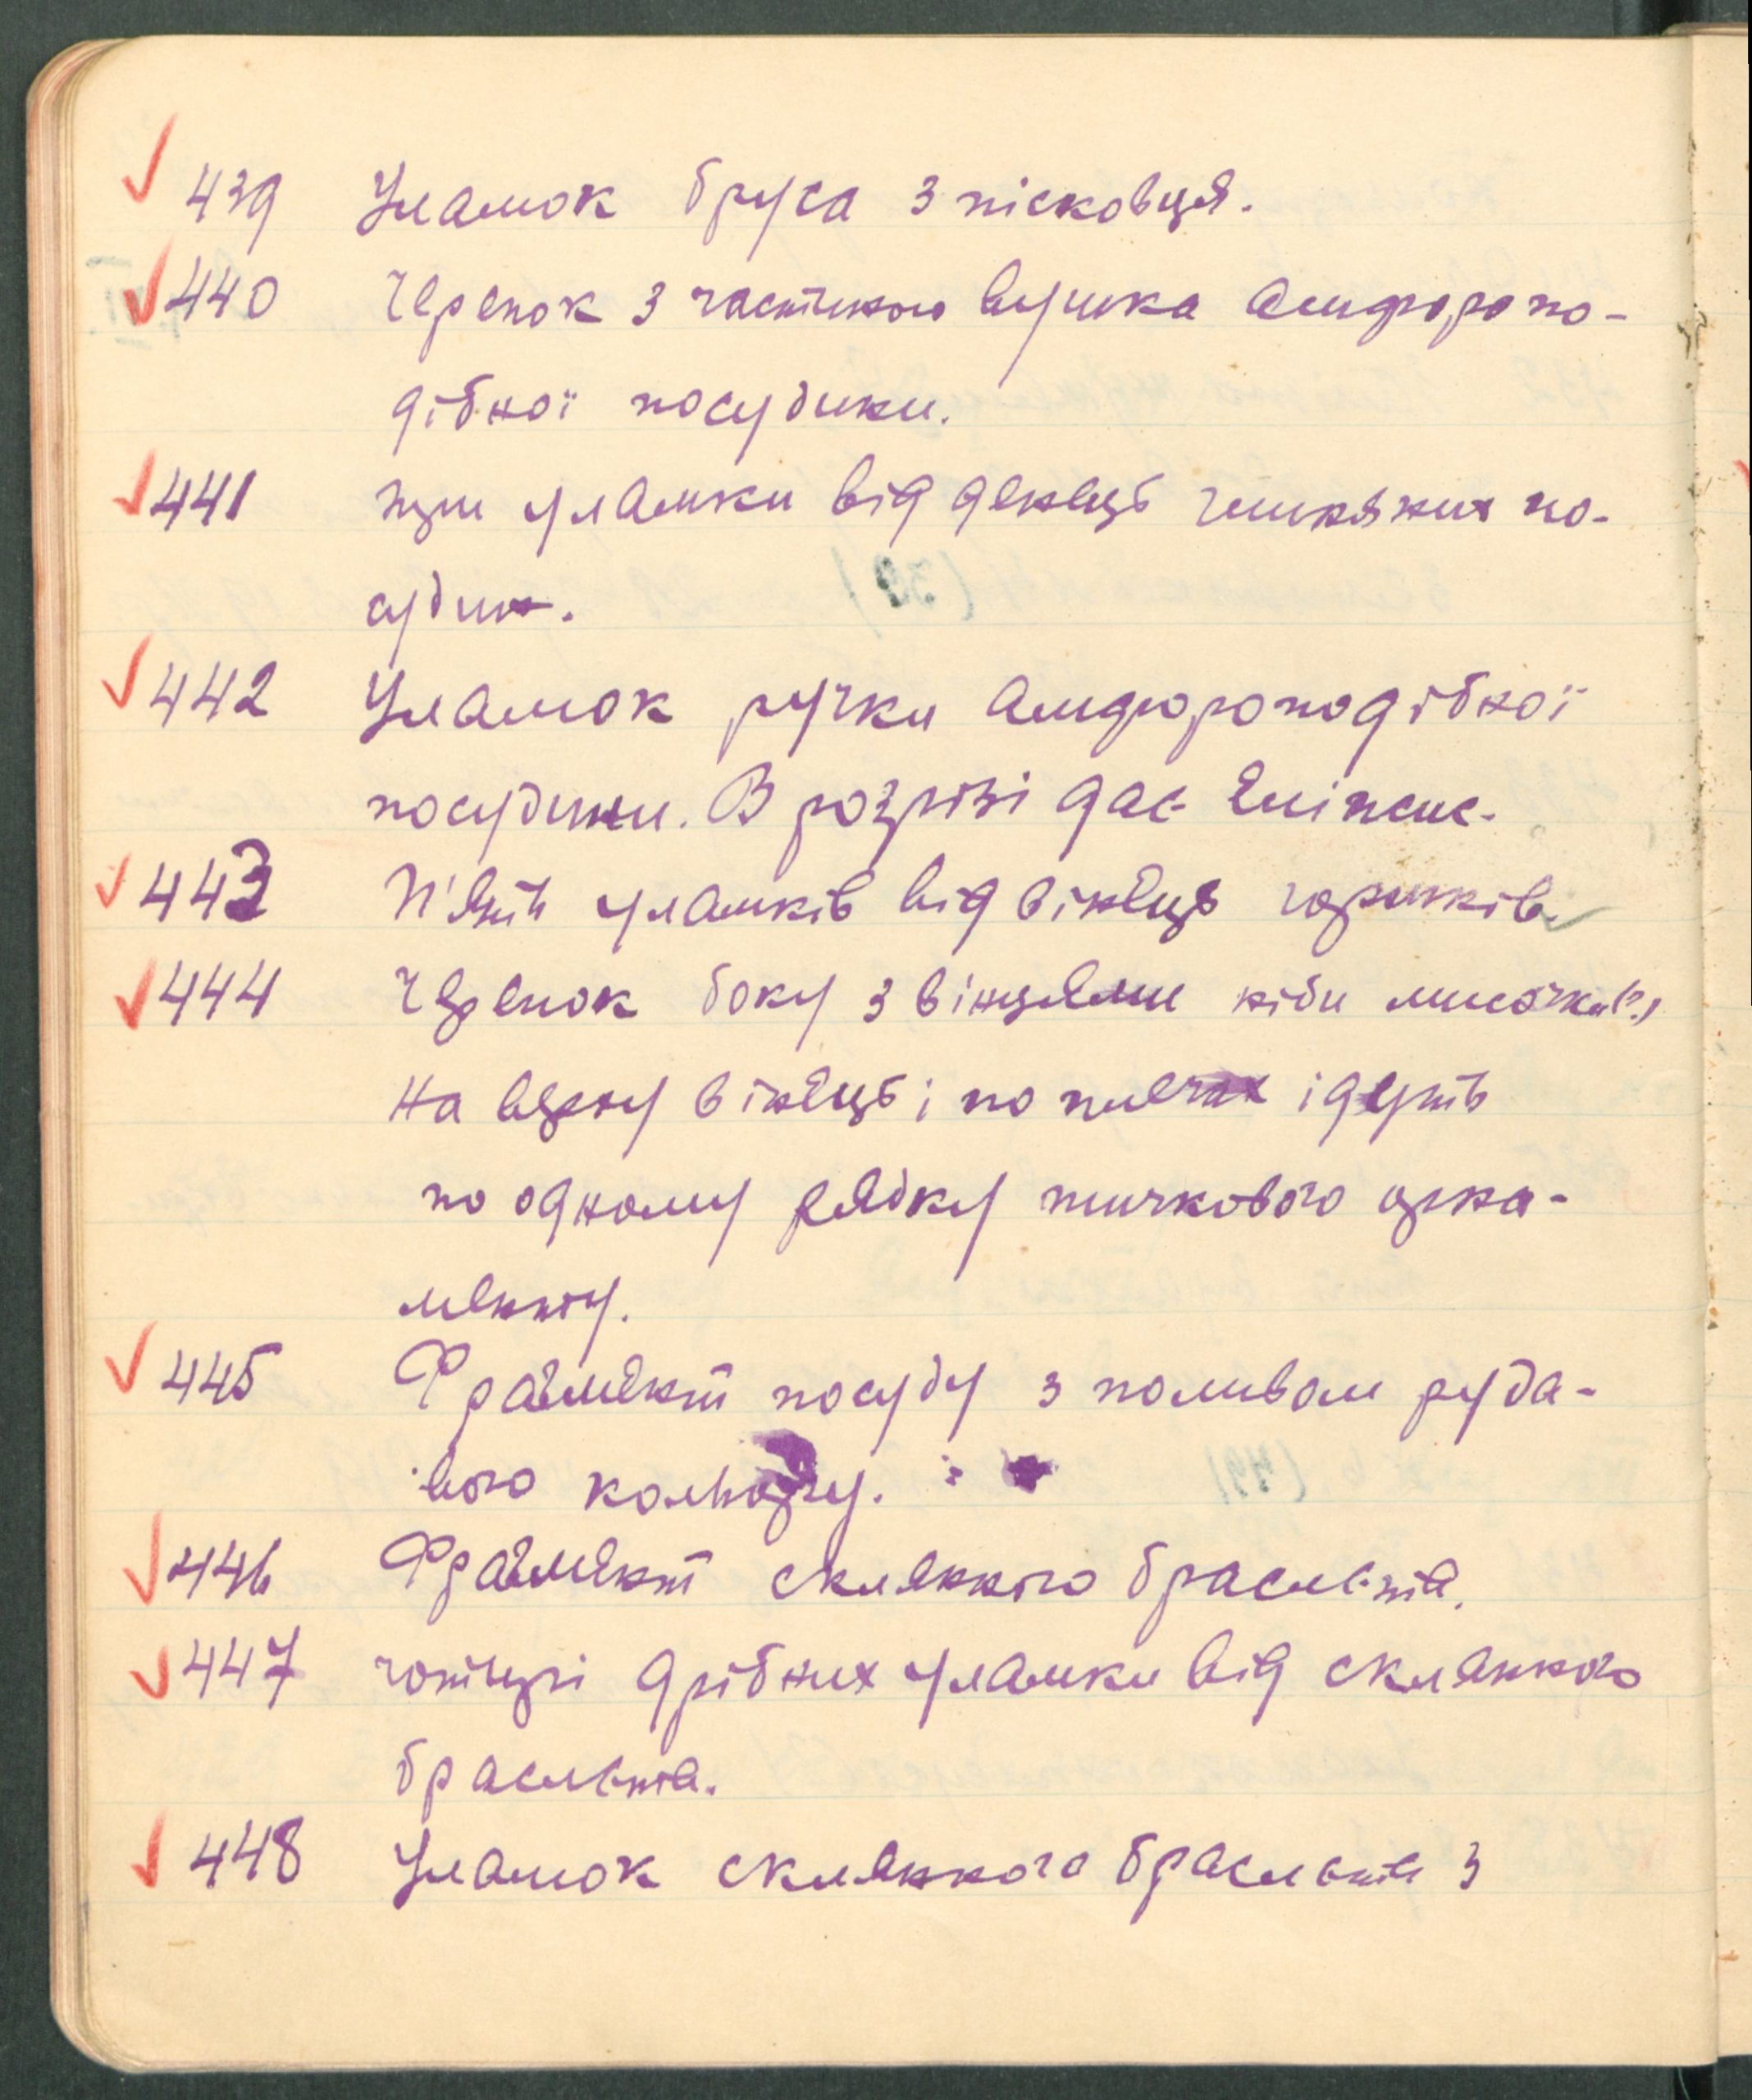 439 Уламок бруса з пісковця.
440 Черепок з частиною вушка амфоропо-
дібної посудини.
441 три уламки від денець глиняних по-
судин.
442 Уламок ручки амфороподібної
посудини. В розрізі дає еліпсис.
443 П'ять уламків від вінець горшків
444 Черепок боку з вінцями ніби мисочки(?)
На верху вінець і по плечах ідуть
по одному рядку тичкового орна-
менту.
445 Фрагмент посуду з поливом руда-
вого кольору.
446 Фрагмент скляного браслета.
447 чотирі дрібних уламки від скляного
браслета.
448 Уламок скляного браслета з